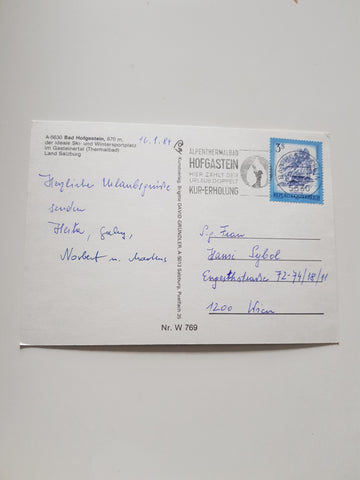 A-5630 Bad Hofgastein, 870 m,
der ideale Ski- und Wintersportplatz
im Gasteinertal (Thermalbad)
Land Salzburg
Herzliche Urlaubsgrüsse
senden
Herta, Gaby,
Norbert u. Markus
Kunstverlag Brigitte DAVID-GRÜNDLER, A-5071 Salzburg, Postfach 25
ALPENTHERMALBAD
HOFGASTEIN
HIER ZÄHLT DER
URLAUB DOPPELT
KUR-ERHOLUNG
3 S
REPUBLIK ÖSTERREICH
5630
Frau
Hansi Sybol
Engerthstrasse 72-74/18/11
1200 Wien
Nr. W 769